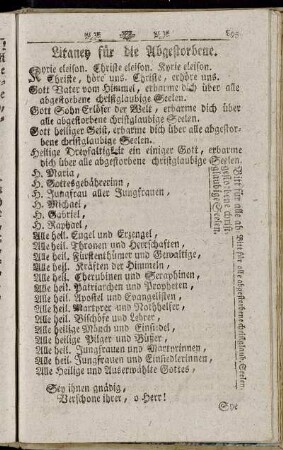 Litaney für die Abgestorbene.
Kyrie eleison. Christe eleison. Kyrie eleison.
Christe, höre uns. Christe, erhöre uns.
Gott Vater vom Himmel, erbarme dich über alle
abgestorbene christglaubige Seelen.
Gott Sohn Erlöser der Welt, erbarme dich über
alle abgestorbene christglaubige Seelen.
Gott heiliger Geist, erbarme dich über alle abgestor-
bene christglaubige Seelen.
Heilige Dreyfaltigkeit ein einiger Gott, erbarme
dich über alle abgestorbene christglaubige Seelen.
H. Maria,
H. Gottesgebährerinn,
H. Jungfrau aller Jungfrauen,
H. Michael,
H. Gabriel,
H. Raphael,
Alle heil. Engel und Erzengel,
Alle heil. Thronen und Herrschaften,
Alle heil. Fürstenthümer und Gewaltige,
Alle heil. Kräften der Himmeln,
Alle heil. Cherubinen und Seraphinen,
Alle heil. Patriarchen und Propheten,
Alle heil. Apostel und Evangelisten,
Alle heil. Martyrer und Nothhelfer,
Alle heil. Bischöfe und Lehrer,
Alle heilige Mönch und Einsidel,
Alle heilige Pilger und Büßer,
Alle heil. Jungfrauen und Martyrinnen,
Alle heil. Jungfrauen und Einsidlerinnen,
Alle Heilige und Auserwählte Gottes,
Bitt für alle ab-
gestorbene christ-
glaubige Seelen.
Bitt für alle abgestorbene christglaub. Seelen.
Sey ihnen gnädig,
Verschone ihrer, o Herr!
Sey